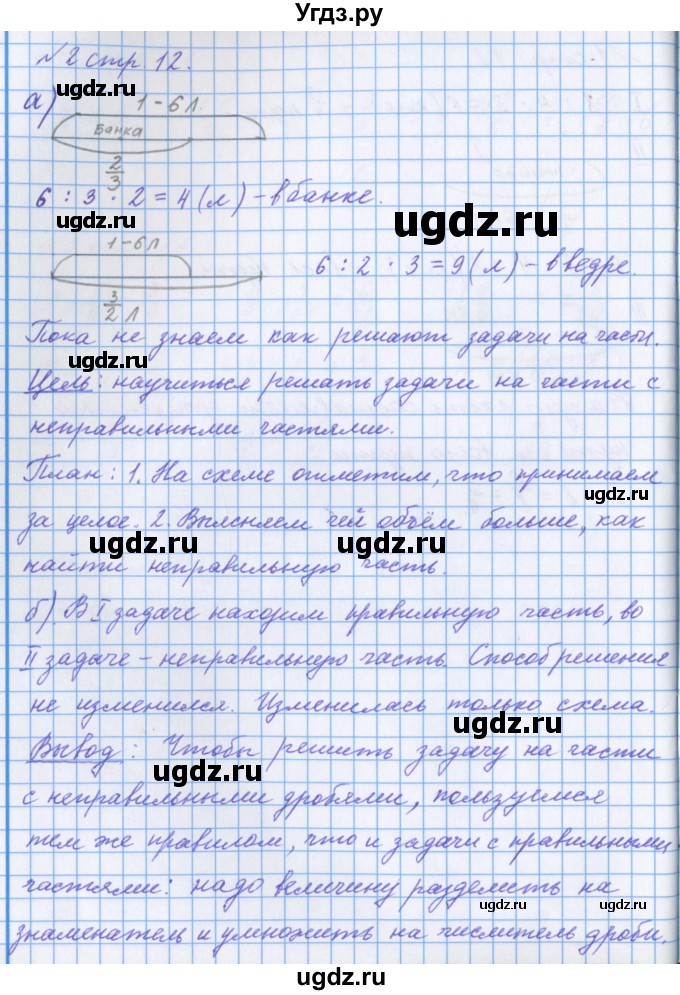 Угдз.ру
№2 стр 12.
угдз.ru
а) 1 - 6 л.
Банка
2/3
угдз.ru
6 : 3 · 2 = 4 (л) – в банке.
ugdz.ru
1 - 6 л
6 : 2 · 3 = 9 (л) – в ведре.
ugdz.ru
3/2 л
Пока не знаем как решают задачи на части.
ugdz.ru
ugdz.ru
Цель: научиться решать задачи на части с
неправильными частями.
План: 1. На схеме отметим, что принимаем
ugdz.ru
за целое. 2. Выясняем чей объём больше, как
ugdz.ru
ugdz.ru
найти неправильную часть.
б) В I задаче находим правильную часть, во
ugdz.ru
II задаче – неправильную часть. Способ решения
не изменился. Изменилась только схема.
ugdz.ru
Вывод: Чтобы решить задачу на части
ugdz.ru
с неправильными дробями, пользуемся
тем же правилом, что и задачи с правильными
ugdz.ru
частями: надо величину разделить на
ugdz.ru
ugdz.ru
знаменатель и умножить на числитель дроби.
ugdz.ru